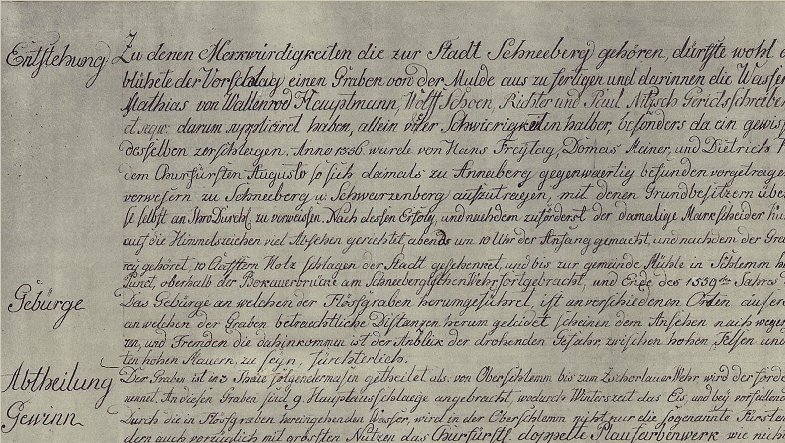 Entstehung
Zu denen Merkwürdigkeiten die zur Stadt Schneeberg gehören, dürfte wohl
blühete der Vorschlag einen Graben von der Mulde aus zu fertigen und darinnen die Wasser
Mathias von Wallenrod Hauptmann, Wolff Schoen, Richter und Paul Nitzsch Gerichtsschreiber
et seqv: darum suppliciret haben, allein vieler Schwierigkeiten halber, besonders da ein gewis
desselben zerschlagen. Anno 1556 wurde von Hans Freytag, Domas Meiner, und Dietrich
dem Churfürsten Augusto so sich damals zu Anneberg gegenwaertig befunden vorgetragen
verwesern zu Schneeberg u. Schwarzenberg aufzutragen, mit denen Grundbesitzern über
se selbst an Ihro Durchl. zu verweissen. Nach dessen Erfolg, und nachdem zuförderst der damalige Markscheider
auf die Himmelszeichen viel Absehen gerichtet, abends um 10 Uhr der Anfang gemacht, und nachdem der Gra
rey gehöret, 10 Clafftern Holz schlagen der Stadt geschencket, und bis zur gemeinde Mühle in Schlemm
Punct, oberhalb der Bokauerbrücke am Schneebergischen Wehr fortgebracht, und Ende des 1559ten Jahres
Gebürge
Das Gebürge an welchen der Flösgraben herumgeführet, ist an verschiedenen Orten
an welchen der Graben betraechtliche Distanzen herum geleidet scheinen dem Ansehen nach wegen
zu, und Fremden die dahin kommen ist der Anblick der drohenden Gefahr, zwischen hohen, Felsen und
ten hohen Mauern, zu seyn, fürchterlich.
Abtheilung
Der Graben ist in 3 Theile folgendermasen getheilet als. von Oberschlemm bis zum Zschorlauer Wehr, wird der forder
nennet. An diesen Graben sind 9 Hauptausschlaege angebracht, wodurch Winterszeit das Eis, und bey vorfallen
Gewinn
Durch die in Flösgraben hereingehenden Wasser, wird in der Oberschlemm nicht nur die sogenante Fürsten
dern auch vorzüglich mit grössten Nutzen das Churfürstl. doppelte Blaufarbenwerk wie nicht